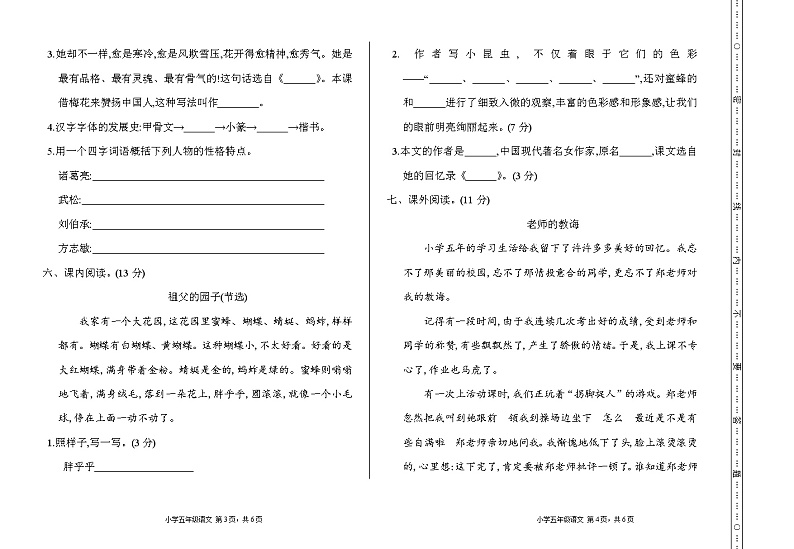 3.她却不一样,愈是寒冷,愈是风欺雪压,花开得愈精神,愈秀气。她是
最有品格、最有灵魂、最有骨气的!这句话选自《______》。本课
借梅花来赞扬中国人,这种写法叫作________。
4.汉字字体的发展史:甲骨文→______→小篆→______→楷书。
5.用一个四字词语概括下列人物的性格特点。
诸葛亮:
武松:
刘伯承:
方志敏:
六、课内阅读。(13 分)
祖父的园子(节选)
我家有一个大花园,这花园里蜜蜂、蝴蝶、蜻蜓、蚂蚱,样样
都有。蝴蝶有白蝴蝶、黄蝴蝶。这种蝴蝶小,不太好看。好看的是
大红蝴蝶,满身带着金粉。蜻蜓是金的,蚂蚱是绿的。蜜蜂则嗡嗡
地飞着,满身绒毛,落到一朵花上,胖乎乎,圆滚滚,就像一个小毛
球,停在上面一动不动了。
1.照样子,写一写。(3 分)
胖乎乎
小学五年级语文 第 3 页，共 6 页
2. 作者写小昆虫, 不仅着眼于它们的色彩
——“______、______、______、______、______”,还对蜜蜂的
和______进行了细致入微的观察,丰富的色彩感和形象感,让我们
的眼前明亮绚丽起来。(7 分)
3.本文的作者是______,中国现代著名女作家,原名______,课文选自
她的回忆录《______》。(3 分)
七、课外阅读。(11 分)
老师的教诲
小学五年的学习生活给我留下了许许多多美好的回忆。我忘
不了那美丽的校园,忘不了那情投意合的同学,更忘不了郑老师对
我的教诲。
记得有一段时间,由于我连续几次考出好的成绩,受到老师和
同学的称赞,有些飘飘然了,产生了骄傲的情绪。于是,我上课不专
心了,作业也马虎了。
有一次上活动课时,我们正玩着“拐脚捉人”的游戏。郑老师
忽然把我叫到她跟前 领我到操场边坐下 怎么 最近是不是有
些自满啦 郑老师亲切地问我。我惭愧地低下了头,脸上滚烫滚烫
的,心里想:这下完了,肯定要被郑老师批评一顿了。谁知道郑老师
小学五年级语文 第 4 页，共 6 页
密 封 线 内 不 要 答 题